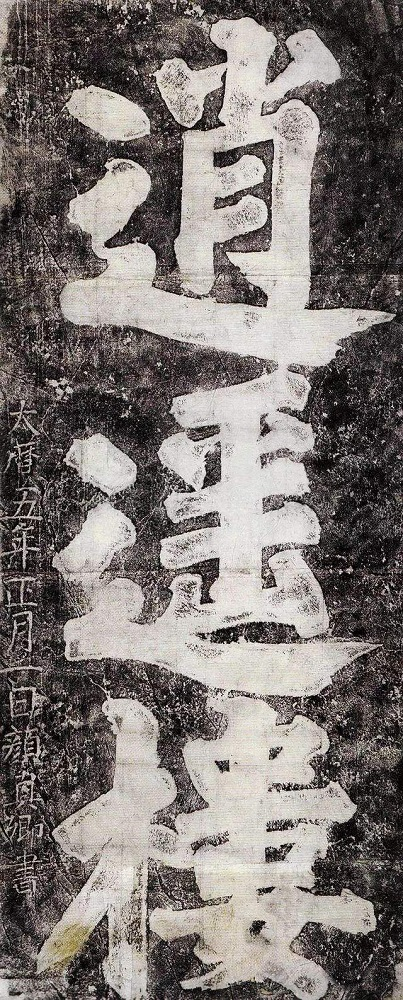 逍遙樓
大曆五年正月一日顏真卿書